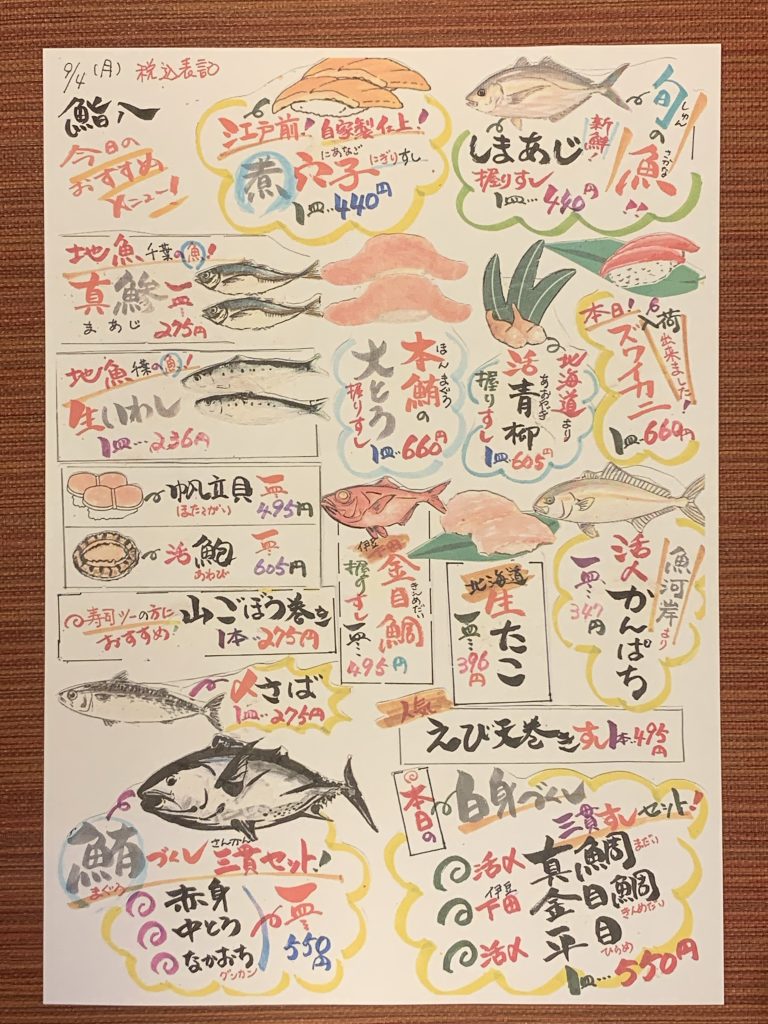 9/4(月) 税込表記
鮨八
今日の
おすすめ
メニュー!
江戸前!自家製仕上!
煮穴子 にぎりすし
にあなご
1皿‥440円
旬の魚!!
しゅん さかな
新鮮!
しまあじ
握りすし
1皿‥440円
地魚 千葉の魚!
真鯵 一皿 275円
まあじ
地魚 千葉の魚!
生いわし
1皿‥236円
本鮪の
ほんまぐろ
大とろ
握りすし
1皿‥660円
北海道より
活青柳
あおやぎ
握りすし
1皿‥605円
本日!入荷出来ました!
ズワイカニ
1皿‥660円
帆立貝 一皿 495円
ほたてがい
活鮑 一皿 605円
あわび
寿司ツーの方に
おすすめ!
山ごぼう巻き
1本‥275円
伊豆
金目鯛
きんめだい
握りすし
一皿‥495円
北海道
生たこ
一皿‥396円
魚河岸より
活〆かんぱち
一皿‥347円
〆さば
1皿‥275円
人気
えび天巻きすし1本‥495円
鮪づくし 三貫セット!
まぐろ さんかん
赤身
中とろ
なかおち
グンカン
一皿‥550円
本日の
白身づくし
三貫すしセット!
活〆 真鯛 まだい
伊豆
下田 金目鯛 きんめだい
活〆 平目 ひらめ
1皿‥550円